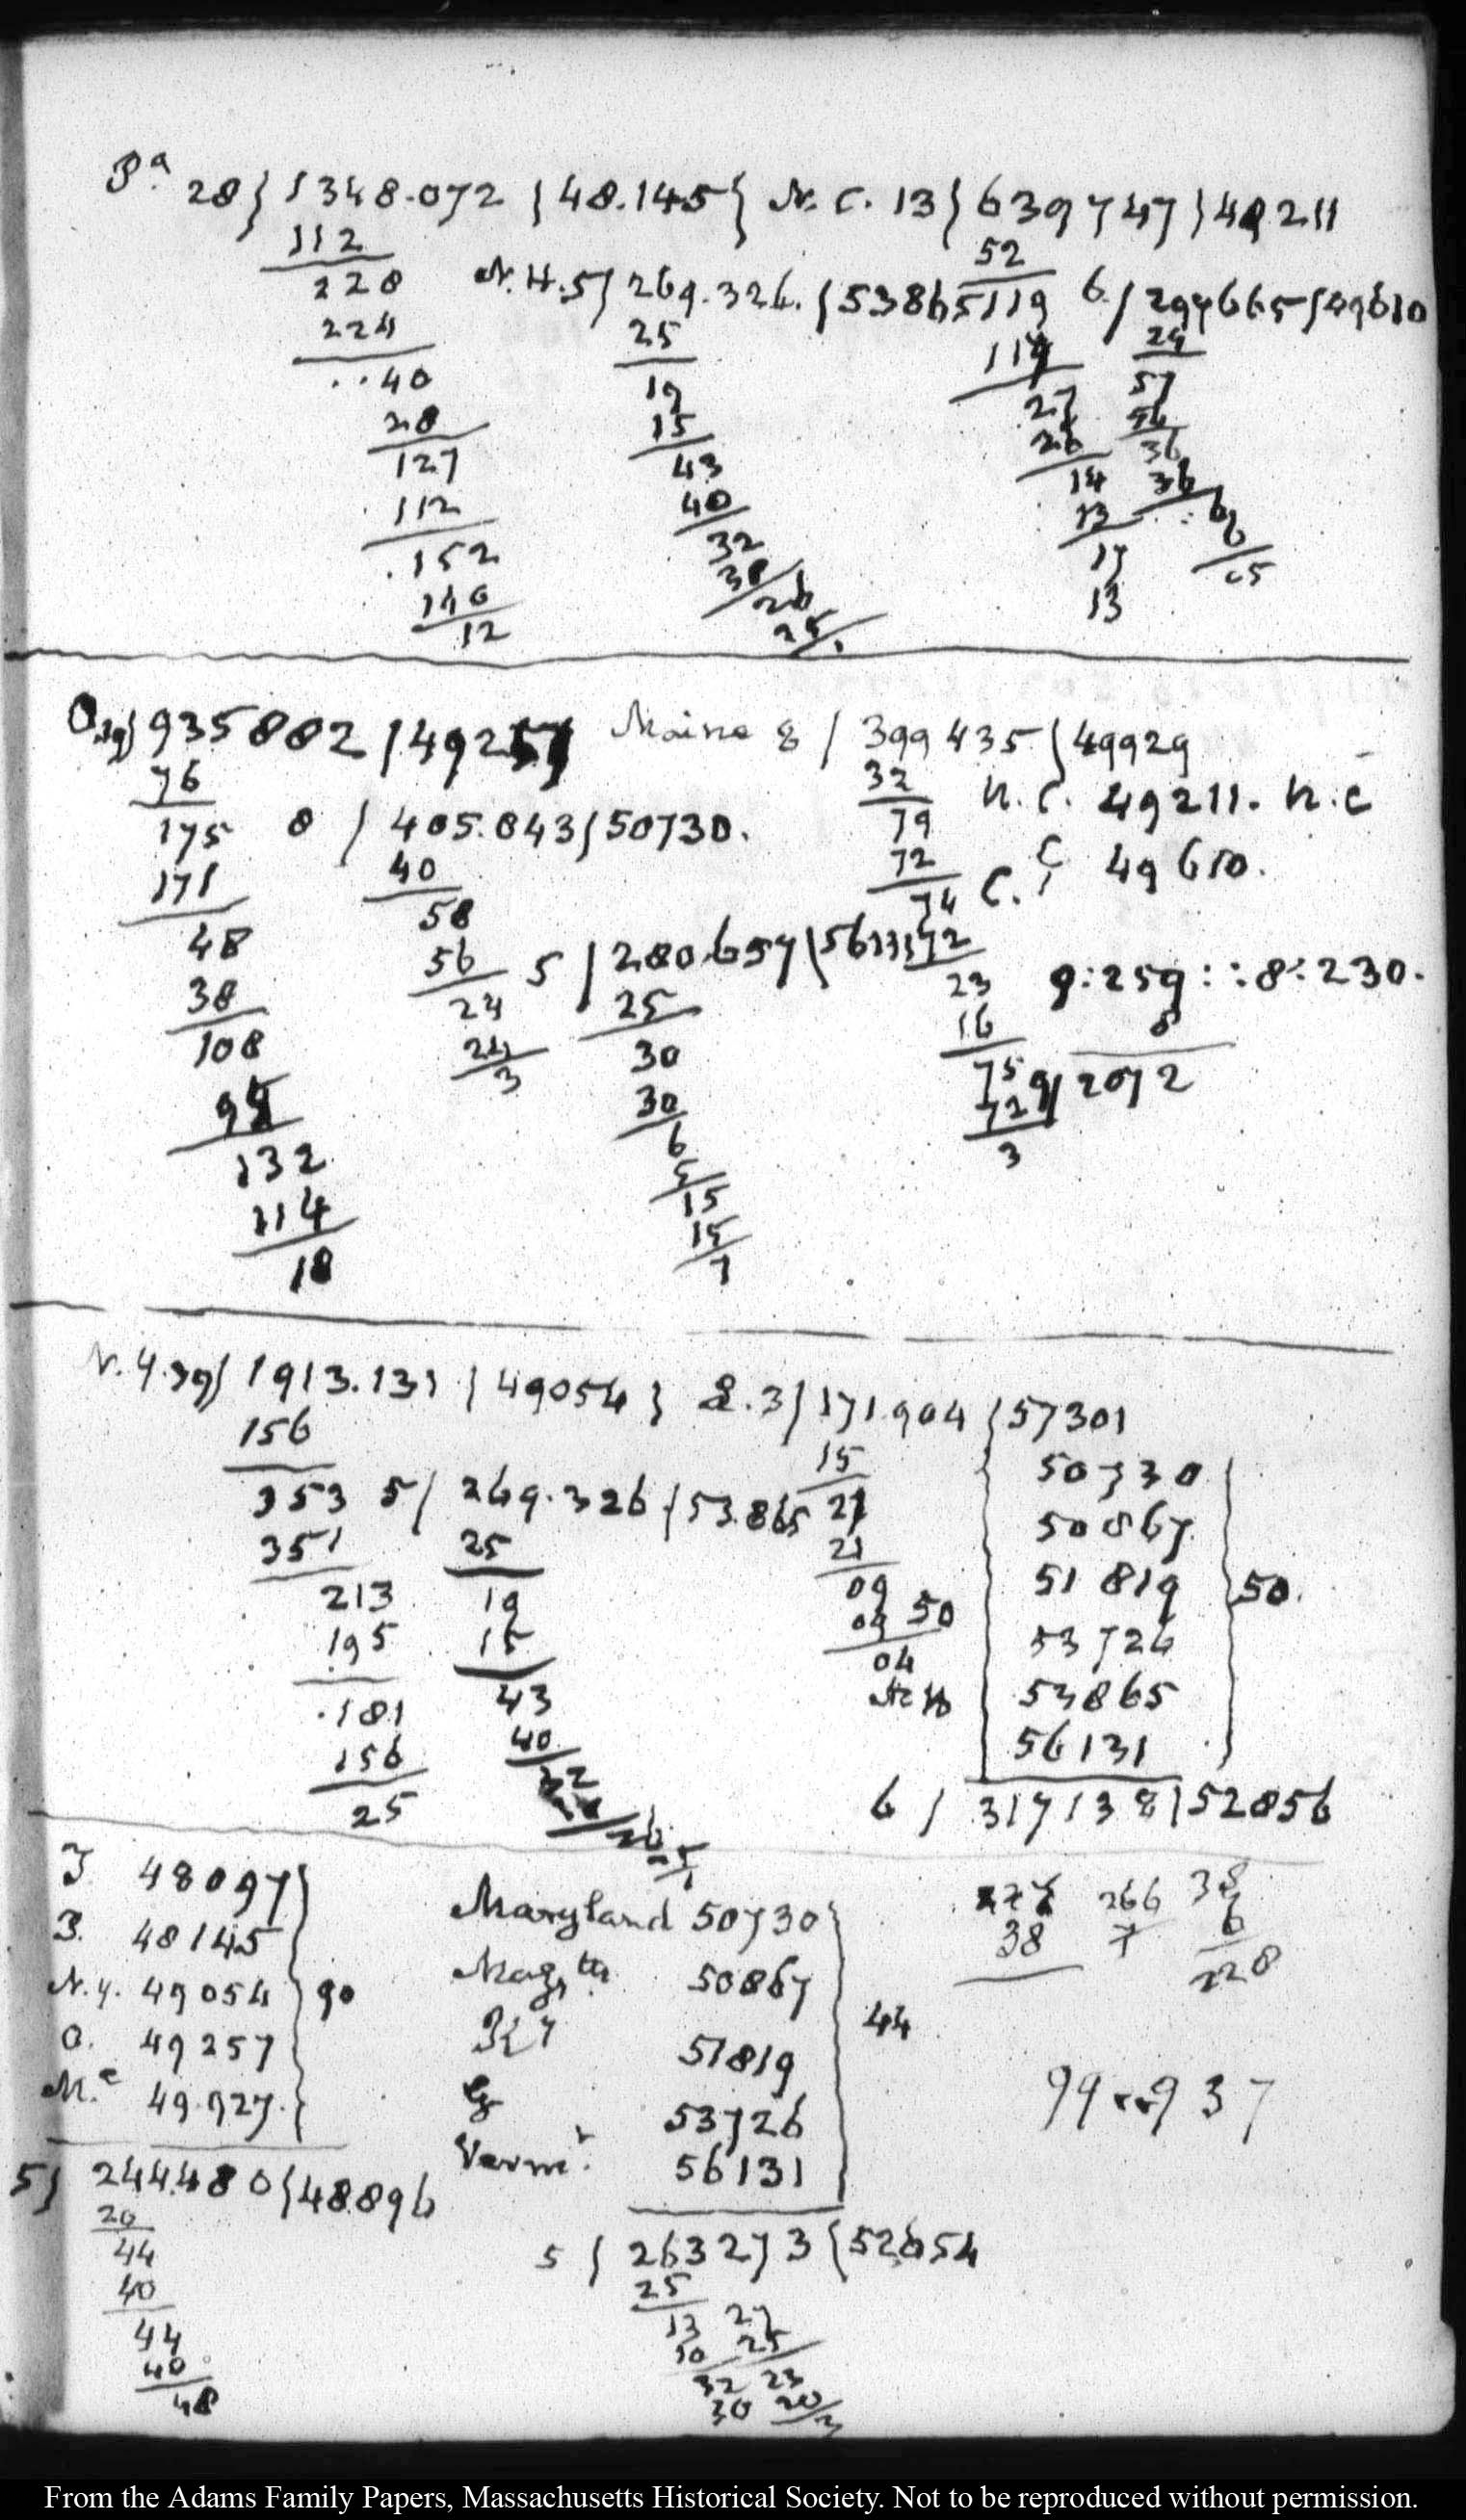 Pa. 28} 1348.072 {48.145} N. C. 13} 639747 } 49211
112 52
220 N. H. 5/ 269.326. {53865 119 6/ 297665 {49610
224 25 117 24
..40 19 27 57
28 15 26 54
127 43 14 36
112 40 13 36
.152 32 17 ..6
140 30 13 6
12 26 05
25
O. 19} 935882 /49257 Maine 8 / 399435 {49929
76 32 N. C. 49211. N. C
175 8 / 405.843 {50730. 79
171 40 72 C. 49610.
48 58 74
38 56 5 / 280.657 {56131 72
108 24 25 23 9:259::8:230.
95 24 30 16 8
132 3 30 75 9/ 2072
114 6 72
18 5 3
15
15
7
N. Y. 39} 1913.131 {49054} 3/ 171.904 {57301
156 15 50730
353 5/ 269.326 {53.865 21 50867
351 25 21 51819 50.
213 19 09 53726
195 15 09 50 53865
.181 43 04 56131
156 40 N H
25 32 6 / 317138 {52856
J 48097
B. 48145
N. Y. 49054 90
O. 49257
M.e 49.927.
5} 244.480 {48.896
20
44
40
44
40
48
Maryland 50730
50867
Ky 51819 44
G 53726
Verm.t 56131
5 { 263273 {52654
25
13 27
10 25
32 23
30 20
3
266 38
38 7 6
228
99..937
From the Adams Family Papers, Massachusetts Historical Society. Not to be reproduced without permission.